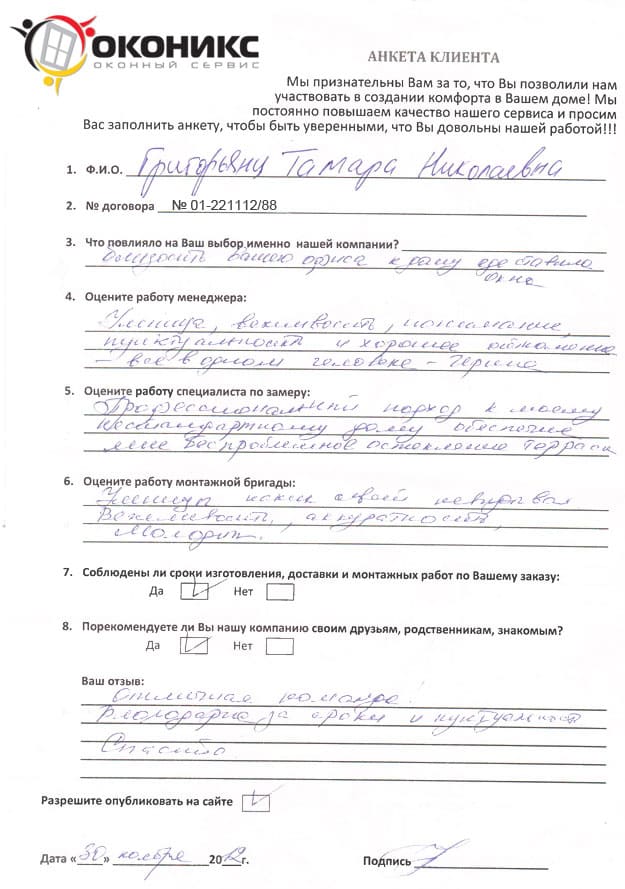 ОКОНИКС
ОКОННЫЙ СЕРВИС
АНКЕТА КЛИЕНТА
Мы признательны Вам за то, что Вы позволили нам
участвовать в создании комфорта в Вашем доме! Мы
постоянно повышаем качество нашего сервиса и просим
Вас заполнить анкету, чтобы быть уверенными, что Вы довольны нашей работой!!!
1. Ф.И.О. Григорьянц Тамара Николаевна
2. № договора № 01-221112/88
3. Что повлияло на Ваш выбор именно нашей компании?
близость вашего офиса к дому где ставила
окна
4. Оцените работу менеджера:
Умница, вежливость, понимание,
пунктуальность и хорошее
– все в одном человеке –
5. Оцените работу специалиста по замеру:
Профессиональный подход к моему
нестандартному дому обеспечил
мне беспроблемное остекление террасы
6. Оцените работу монтажной бригады:
Умницы
Вежливость, аккуратность,
Молодцы.
7. Соблюдены ли сроки изготовления, доставки и монтажных работ по Вашему заказу:
Да Нет
8. Порекомендуете ли Вы нашу компанию своим друзьям, родственникам, знакомым?
Да Нет
Ваш отзыв:
Отличная команда.
Благодарна за сроки и пунктуальность
Спасибо
Разрешите опубликовать на сайте
Дата «30» ноября 2012г. Подпись